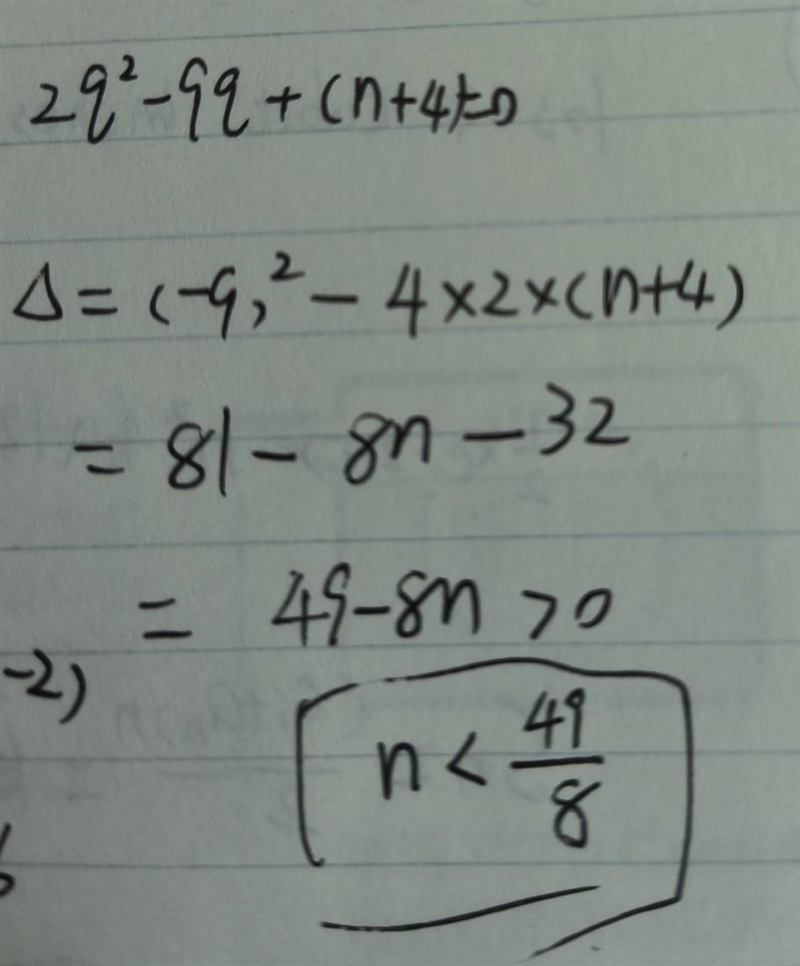 2q²-9q+(n+4)=0
Δ=(-9)²-4×2×(n+4)
=81-8n-32
=49-8n>0
-2)
n<49/8